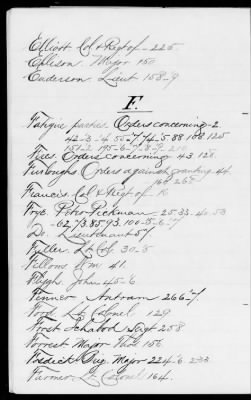 Elliott Col & Regt of - 225
Ellison Major 150
Enderson Lieut 158-9
F.
Fatigue parties Orders concerning - 2
42-3-4 55-7, 74-5 88 108 125
151-2 195-6-7-8-9 210
Fires, Orders concerning 43 128
Furloughs Orders against granting 44
160 265
Francis Col & Regt of 16
Foye. Peter Pickman - 25. 33. 40. 53
62. 73. 85. 93. 100-5-6-7
Do. Lieutenant 57.
Fuller. Lt Col 30-5
Fellows Wm 41.
Fligh John 45-6
Fenner, Antram 266-7.
Ford Lt Colonel 129
Frost Ichabod Sergt 258
Forrest Major Thos 156
Fosdick Brig. Major 224-6 233
Farmer, Lt Colonel 164.